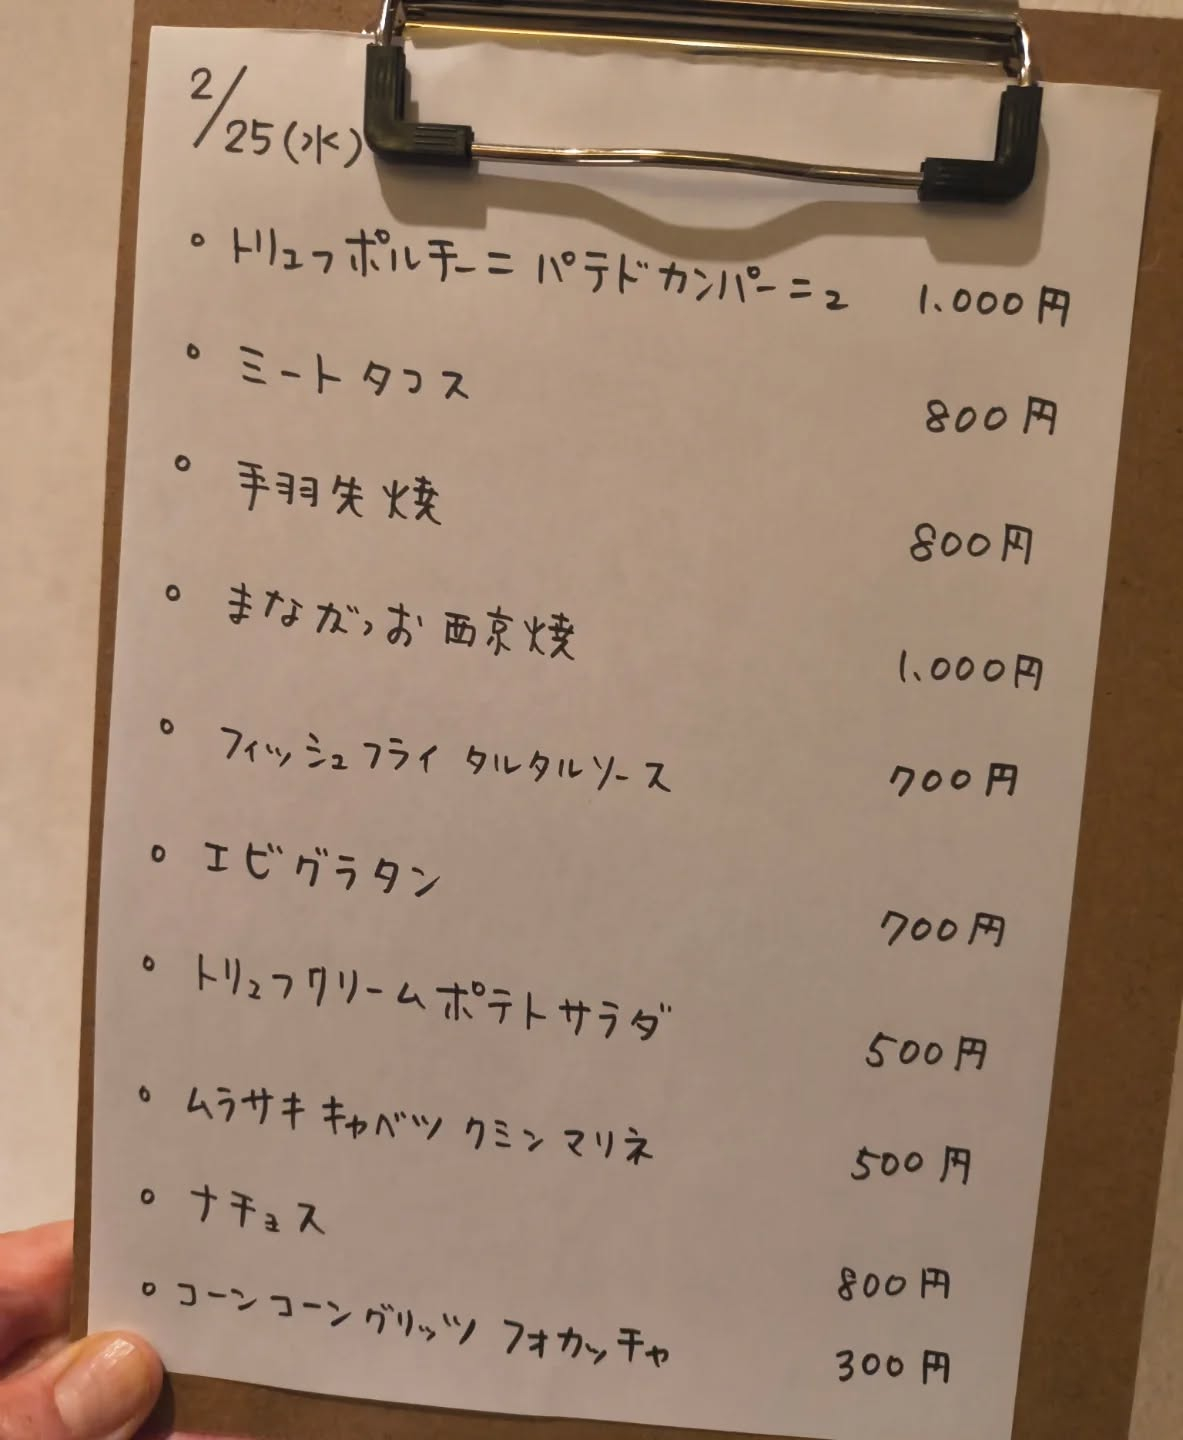 2/25(水)
° トリュフポルチーニ パテドカンパーニュ 1.000円
° ミートタコス 800円
° 手羽先焼 800円
° まながつお 西京焼 1.000円
° フィッシュフライ タルタルソース 700円
° エビグラタン 700円
° トリュフクリームポテトサラダ 500円
° ムラサキキャベツ クミンマリネ 500円
° ナチョス 800円
° コーンコーングリッツ フォカッチャ 300円